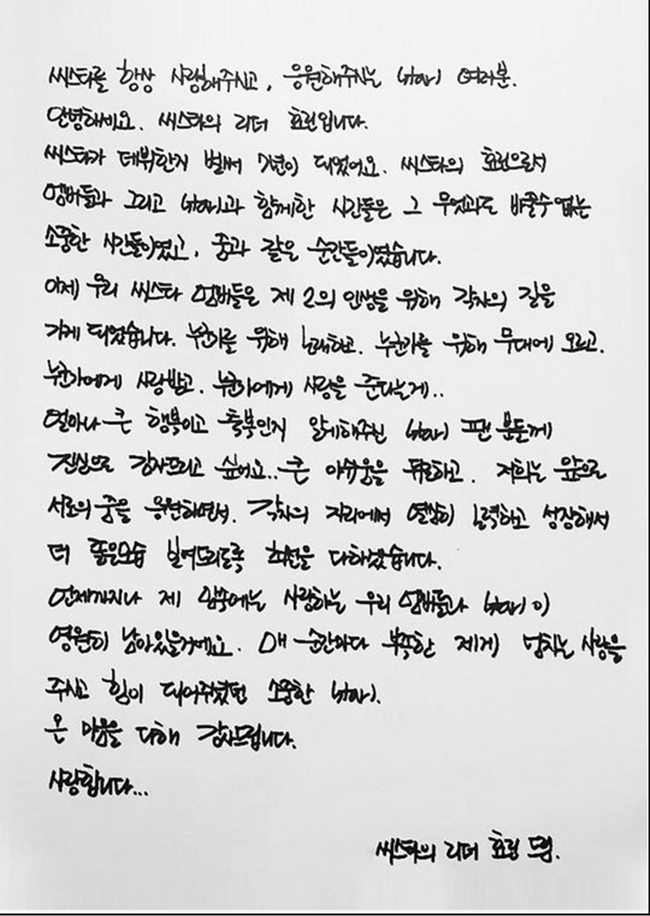 씨스타를 항상 사랑해주시고, 응원해주시는 남아1 여러분.
안녕하세요. 씨스타의 리더 효린입니다.
씨스타가 데뷔한지 벌써 7년이 되었어요. 씨스타의 효린으로서
멤버들과 그리고 남아1과 함께한 시간들은 그 무엇과도 바꿀수 없는
소중한 시간들이였고, 꿈과 같은 순간들이였습니다.
이제 우리 씨스타 멤버들은 제 2의 인생을 위해 각자의 길을
가게 되었습니다. 누군가를 위해 노래하고. 누군가를 위해 무대에 오르고.
누군가에게 사랑받고. 누군가에게 사랑을 준다는게..
얼마나 큰 행복이고 축복인지 알게해주신 팬 분들께
진심으로 감사드리고 싶어요.. 큰 아쉬움을 뒤로하고. 저희는 앞으로
서로의 꿈을 응원하면서. 각자의 자리에서 열심히 노력하고 성장해서
더 좋은모습 보여드리도록 최선을 다하겠습니다.
언제까지나 제 마음에는 사랑하는 우리 멤버들과 이
영원히 남아있을거에요. 매 순간마다 부족한 제게 넘치는 사랑을
주시고 힘이 되어주셨던 소중한
온 마음을 다해 감사드립니다.
사랑합니다...
씨스타의 리더 효린 드림.